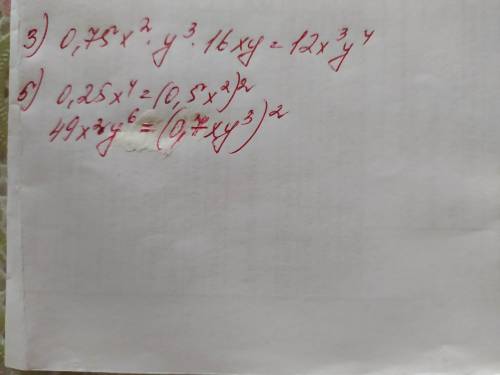 3) 0,75x²·y³·16xy=12x³y⁴
5) 0,25x⁴=(0,5x²)²
49x²y⁶=(0,7xy³)²